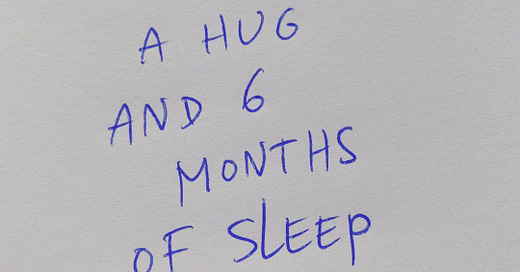 A HUG
AND 6
MONTHS
OF SLEEP